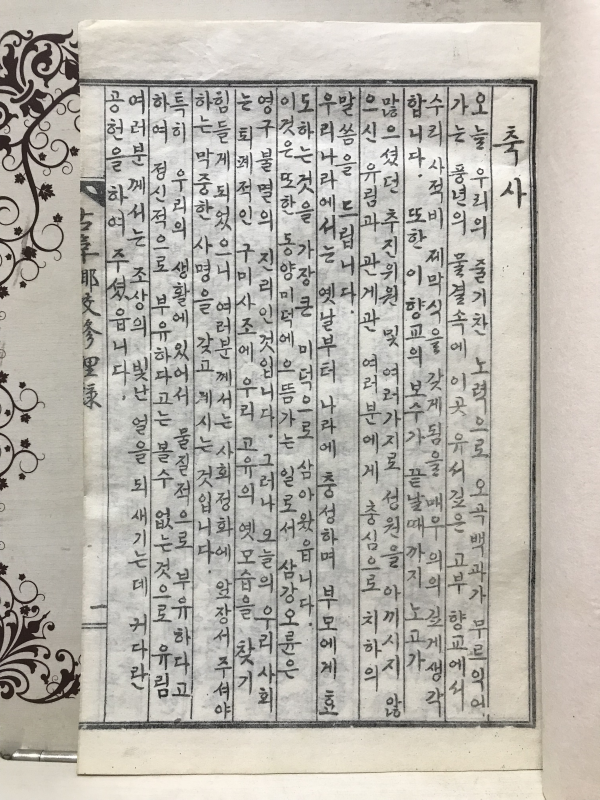 축사
오늘 우리의 줄기찬 노력으로 오곡백과가 무르익어
가는 풍년의 물결속에 이곳 유서깊은 고부 향교에서
수리 사적비 제막식을 갖게됨을 매우 의의 깊게생각
합니다. 또한 이 향교의 보수가 끝날때까지 노고가
많으셨던 추진위원 및 여러가지로 성원을 아끼시지 않
으신 유림과 관계관 여러분에게 충심으로 치하의
말씀을 드립니다.
우리나라에서는 옛날부터 나라에 충성하며 부모에게 효
도하는것을 가장큰 미덕으로 삼아왔읍니다.
이것은 또한 동양미덕에 으뜸가는 일로서 삼강오륜은
영구불멸의 진리인것입니다. 그러나 오늘의 우리사회
는 퇴폐적인 구미사조에 우리 고유의 옛모습을 찾기
힘들게되었으니 여러분께서는 사회정화에 앞장서 주셔야
하는 막중한 사명을 갖고 계시는것입니다.
특히 우리의 생활에 있어서 물질적으로 부유하다고
하여 정신적으로 부유하다고는 볼수 없는것으로 유림
여러분께서는 조상의 빛난 얼을 되새기는데 커다란
공헌을하여 주셨읍니다.
古阜鄕校修理錄
一